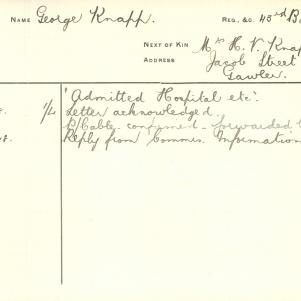 NAME George Knapp. REG. &C. 43rd B
NEXT OF KIN Mrs H. V. Knap
ADDRESS Jacob Street
Gawler.
1/4 'Admitted Hospital etc'.
Letter acknowledged.
P/Cable confirmed - forwarded
Reply from Commis. Information